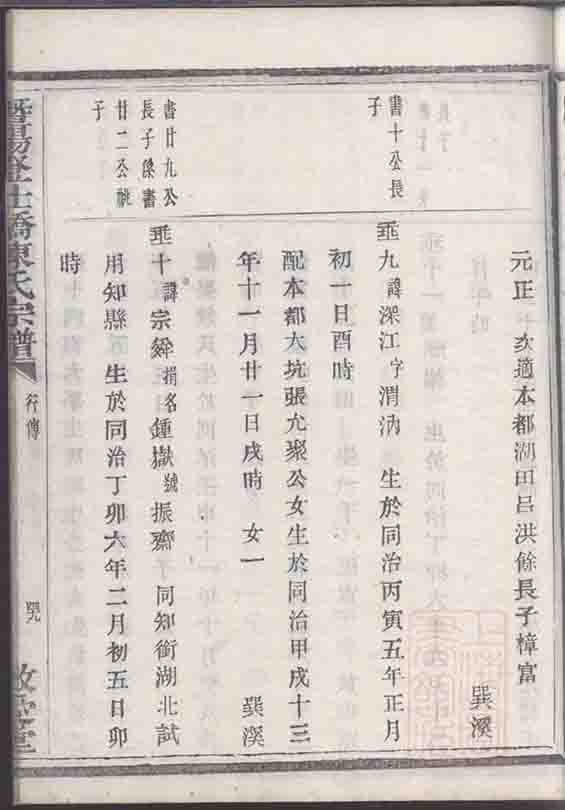 元正 次適本都湖田呂洪餘長子樟富
巽溪
書十公長
子
垂九諱深江字渭汭 生於同治丙寅五年正月
初一日酉時
配本都大坑張允聚公女生於同治甲戌十三
年十一月廿一日戌時 女一 巽溪
書廿九公
長子傑書
廿二公祧
子
垂十諱宗舜捐名鍾嶽號振齋 同知銜湖北試
用知縣 生於同治丁卯六年二月初五日卯
時
暨陽登仕橋陳氏宗譜
行傳